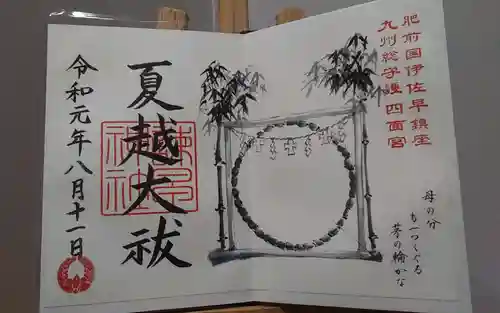 肥前国伊佐早鎮座
九州総守護 四面宮
母の分
もつくぐる
茅の輪かな
夏越大祓
令和元年八月十一日